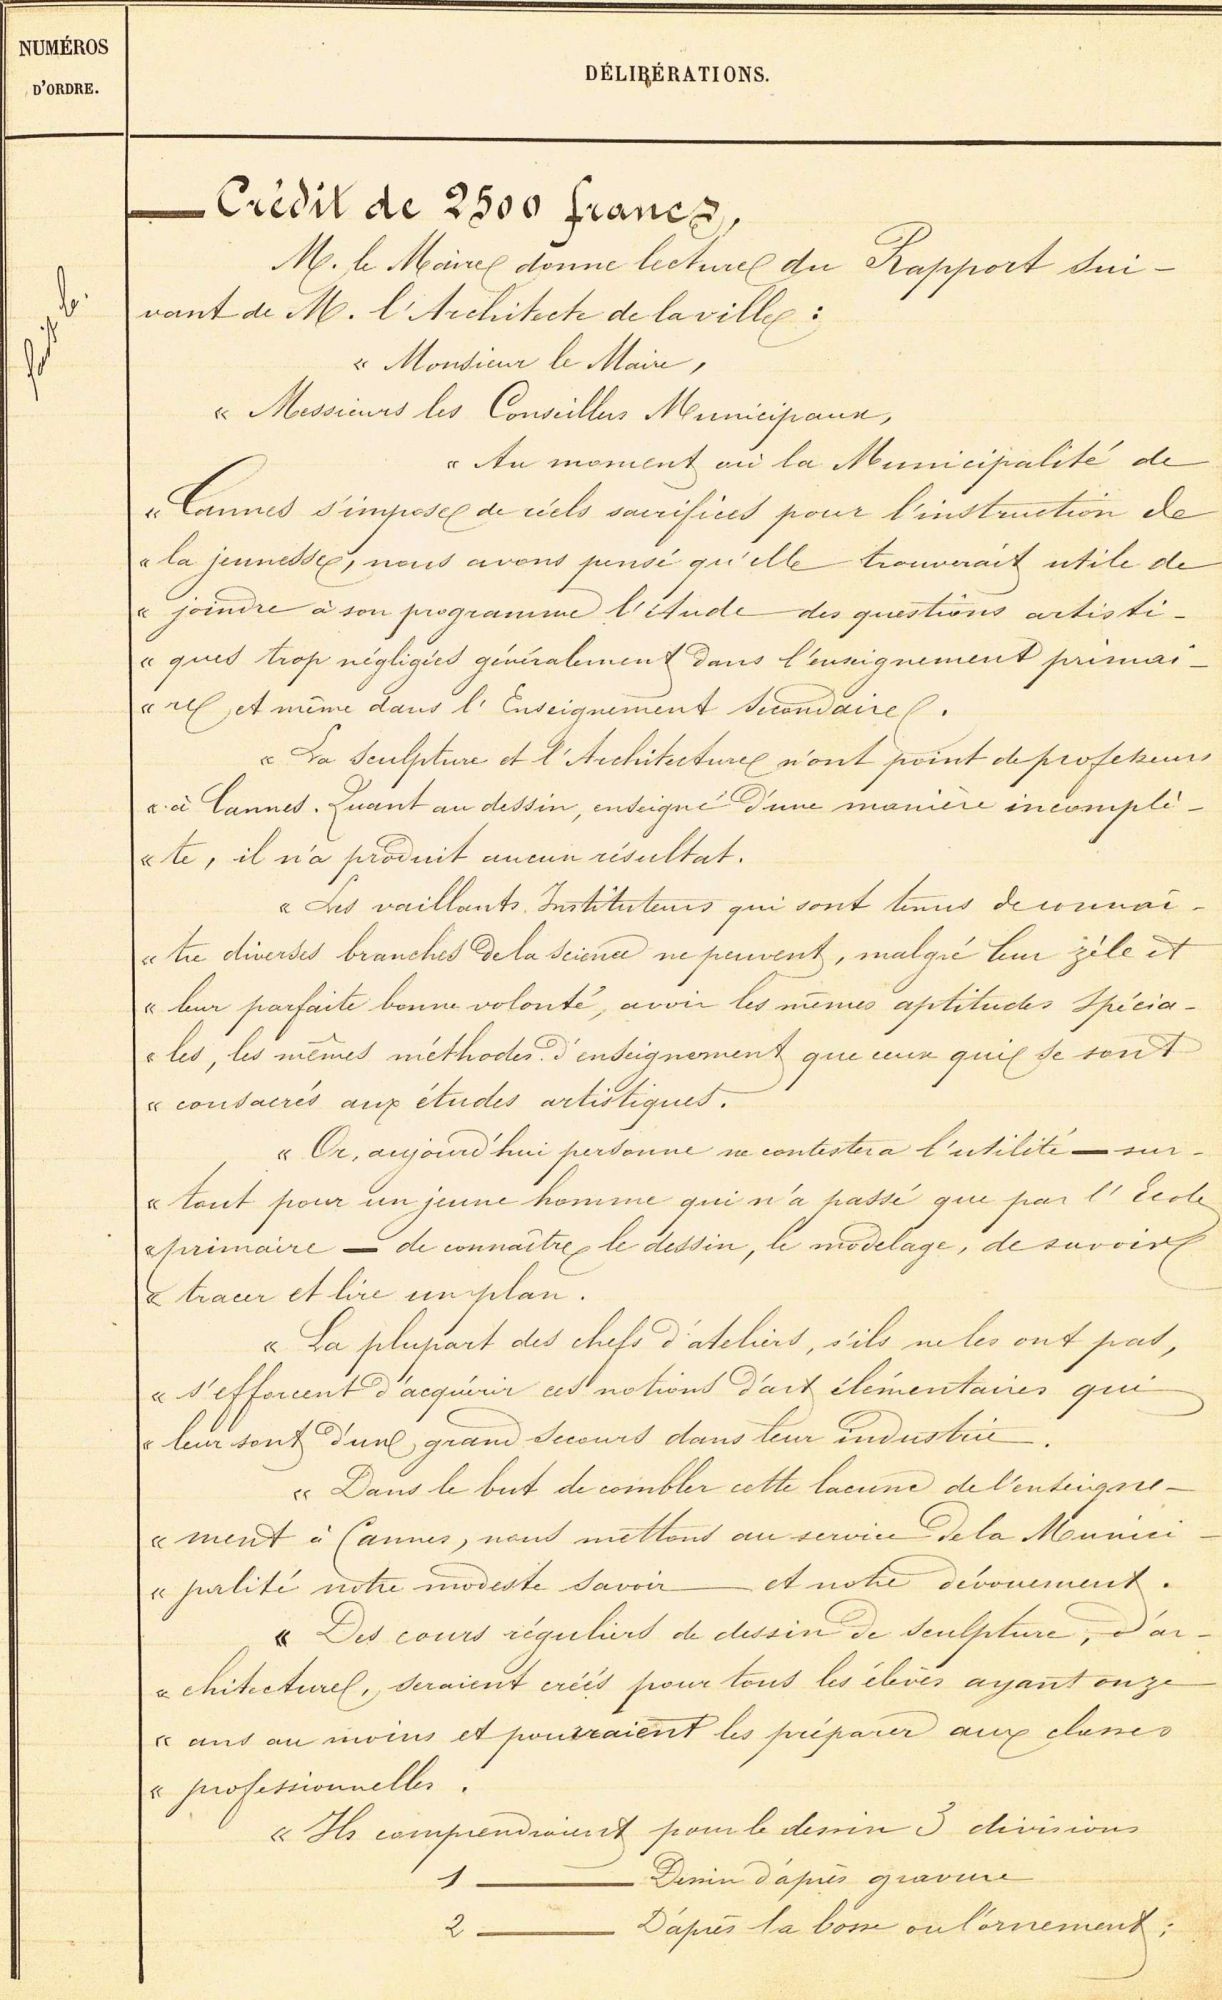 NUMÉROS
D'ORDRE.
DÉLIBÉRATIONS.
Crédit de 2500 francs,
M. le Maire donne lecture du Rapport sui-
vant de M. l'Architecte de la ville :
« Monsieur le Maire,
« Messieurs les Conseillers Municipaux,
« Au moment où la Municipalité de
« Cannes s'impose de réels sacrifices pour l'instruction de
« la jeunesse, nous avons pensé qu'elle trouverait utile de
« joindre à son programme l'étude des questions artisti-
« ques trop négligées généralement dans l'enseignement primai-
« re et même dans l'Enseignement Secondaire.
« La Sculpture et l'Architecture n'ont point de professeurs
« à Cannes. Quant au dessin, enseigné d'une manière incomplè-
« te, il n'a produit aucun résultat.
« Les vaillants Instituteurs qui sont tenus de connaî-
« tre diverses branches de la Science ne peuvent, malgré leur zèle et
« leur parfaite bonne volonté, avoir les mêmes aptitudes spécia-
« les, les mêmes méthodes d'enseignement que ceux qui se sont
« consacrés aux études artistiques.
« Or, aujourd'hui personne ne contestera l'utilité — sur-
« tout pour un jeune homme qui n'a passé que par l'Ecole
« primaire — de connaître le dessin, le modelage, de savoir
« tracer et lire un plan.
« La plupart des chefs d'ateliers, s'ils ne les ont pas,
« s'efforcent d'acquérir ces notions d'art élémentaires qui
« leur sont d'un grand secours dans leur industrie.
« Dans le but de combler cette lacune de l'enseigne-
« ment à Cannes, nous mettons au service de la Munici-
« palité notre modeste savoir et notre dévouement.
« Des cours réguliers de dessin de sculpture, d'ar-
« chitecture, seraient créés pour tous les élèves ayant onze
« ans au moins et pourraient les préparer aux classes
« professionnelles.
« Ils comprendraient pour le dessin 3 divisions
1 — Dessin d'après gravure
2 — D'après la bosse ou l'ornement;